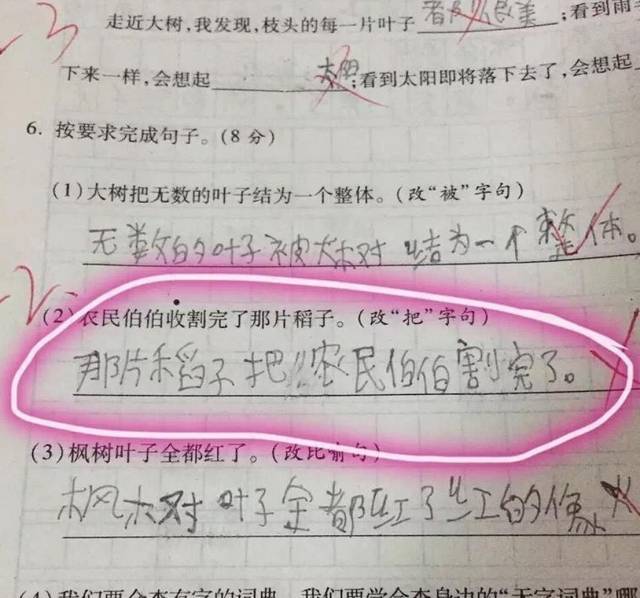 走近大树,我发现,枝头的每一片叶子 ;看到雨
下来一样,会想起 ;看到太阳即将落下去了,会想起
6. 按要求完成句子。(8 分)
(1)大树把无数的叶子结为一个整体。(改“被”字句)
无数的叶子被大树结为一个整体。
(2)农民伯伯收割完了那片稻子。(改“把”字句)
那片稻子把农民伯伯割完了。
(3)枫树叶子全都红了。(改比喻句)
枫树叶子全都红了红的像火
(4)我们要会查有字的词典,我们要学会查身边的“无字词典”